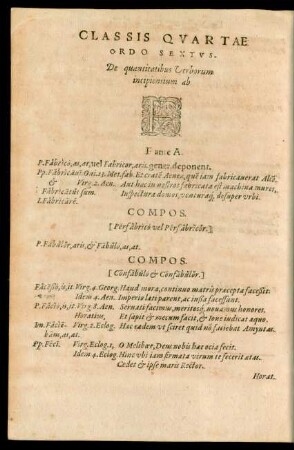 CLASSIS QVARTAE
ORDO SEXTVS.
De quantitatibus Verborum
incipientium ab
F
F ante A.
P. Făbrĭcō, as, at, vel Fabricor, aris, genes, deponent.
Pp. Făbrĭcāuī. Oui. 13. Met. fab. Aeneę, quẽ iam fabricauerat Alcō.
& Virg. 2. Aen. Aut hęc in nostros fabricata est machina muros,
Făbrĭcātŭs sum. Inspectura domos, venturaq́; desuper vrbi.
I. Făbrĭcārĕ.
COMPOS.
[ Pērfābrico vel Pērfābrĭcŏr. ]
P. Fābŭlŏr, aris, & Fābŭlō, as, at.
COMPOS.
[ Cōnfābŭlo & Cōnfābŭlŏr. ]
Făcēssō, is, it. Virg. 4. Georg. Haud mora, continuo matris pręcepta facessit.
Idem 4. Aen. Imperio lęti parent, ac iussa facessunt.
P. Făcĭō, is, it. Virg. 8. Aen. Seruati facimus, meritosq́; nouamus honores.
Horatius, Et sapit & mecum facit, & Ioue iudicat ęquo.
Im. Făcĭē- Virg. 1. Eclog. Hoc eadem vt sciret quid nō faciebat Amyntas.
bam, as, at.
Pp. Fēcī. Virg. Eclog. 1. O Melibœe, Deus nobis hęc otia fecit.
Idem 4. Eclog. Hinc vbi iam firmata virum te fecerit ętas.
Cedet & ipse mari vector.
Horat.